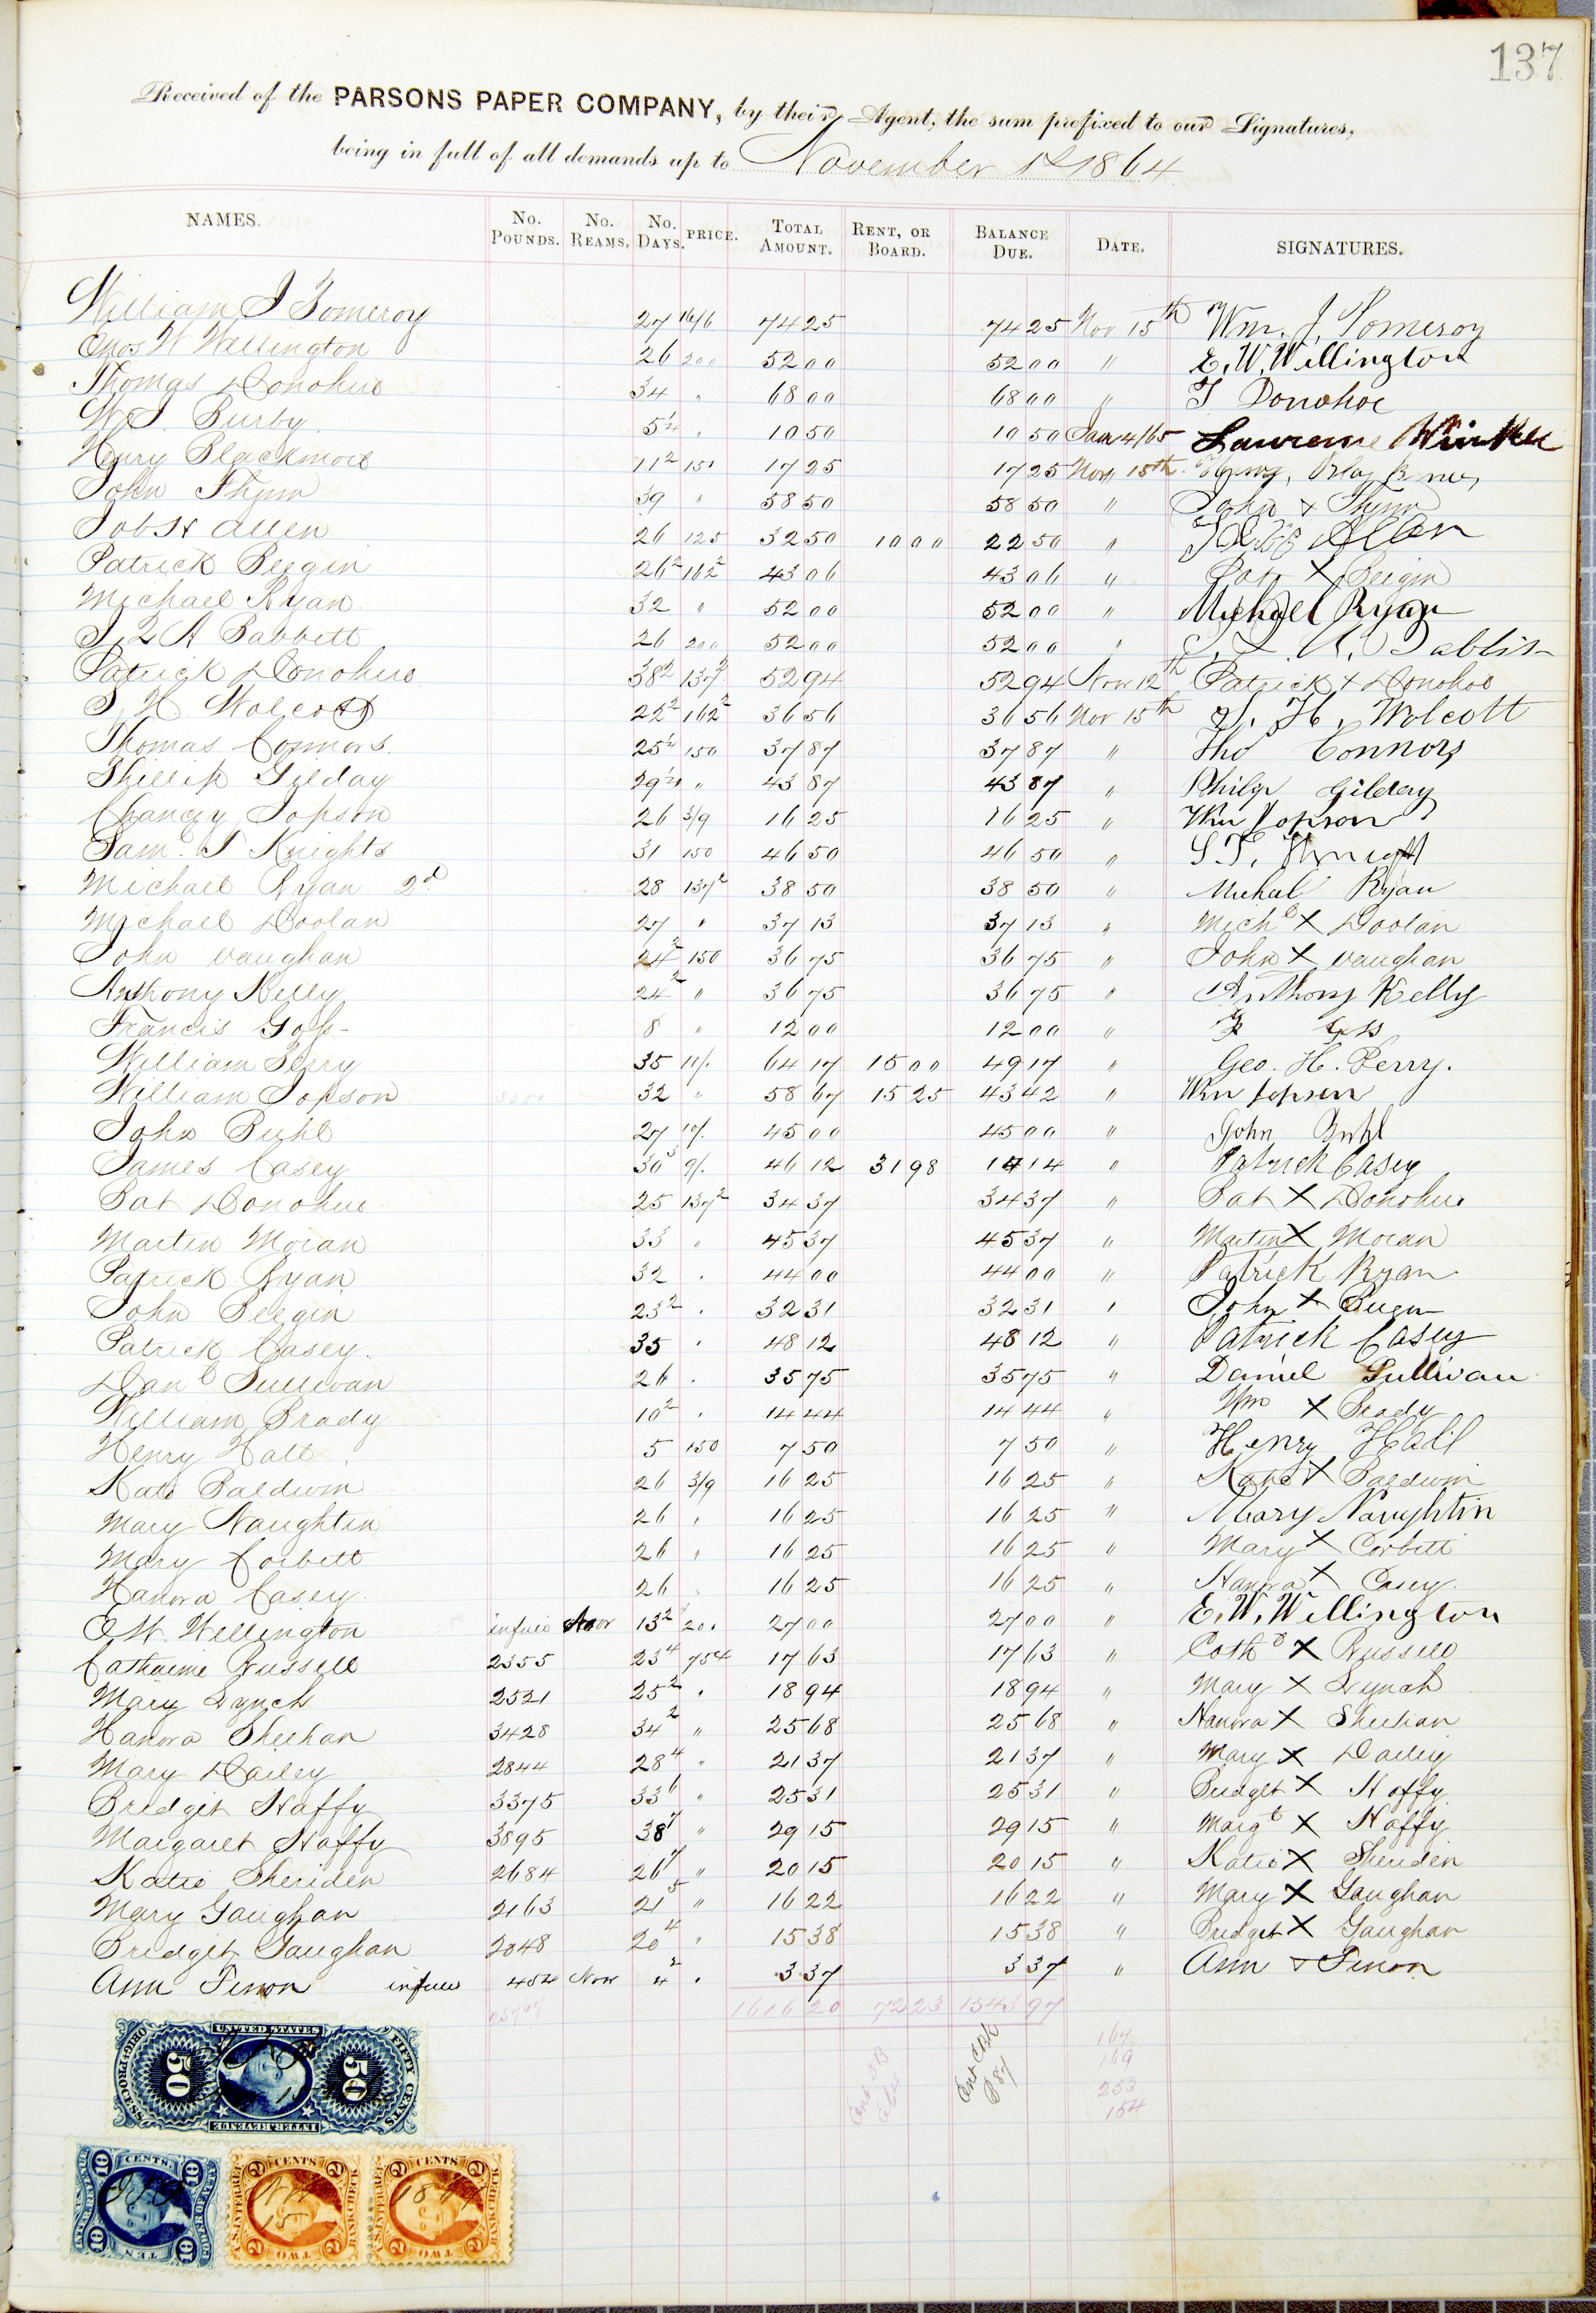 137
Received of the PARSONS PAPER COMPANY, by their Agent, the sum prefixed to our Signatures,
being in full of all demands up to November 1st 1864
NAMES. No. Pounds. No. Reams. No. Days. PRICE. Total Amount. Rent, or Board. Balance Due. Date. SIGNATURES.
William J Pomeroy 27 16/6 74 25 74 25 Nov 15th Wm. J. Pomeroy
Enos W Wellington 26 200 52 00 52 00 " E. W. Wellington
Thomas Donohue 34 " 68 00 68 00 " T Donohoe
W. J. Burby 5¼ " 10 50 10 50 Jan 4/65 Lawrence
Henry Blackmore 11² 150 17 25 17 25 Nov 15th Henry
John Flynn 39 " 58 50 58 50 " John x Flynn
Job H Allen 26 125 32 50 10 00 22 50 " Allen
Patrick Bergin 26² 162² 43 06 43 06 " Pat X Bergin
Michael Ryan 32 " 52 00 52 00 " Michael Ryan
J. Q A Babbett 26 200 52 00 52 00 "
Patrick Donohue 38² 137² 52 94 52 94 Nov 12th Patrick x Donohoe
J. H. Wolcott 22² 162² 36 56 36 56 Nov 15th J. H. Wolcott
Thomas Connors 25¼ 150 37 87 37 87 " Tho Connors
Phillip Gilday 29¼ " 43 87 43 87 " Philip Gilday
Chancey Jopson 26 3/9 16 25 16 25 " Wm Jopson
Sam. T Knights 31 150 46 50 46 50 " S. T. Knight
Michael Ryan 2d 28 137² 38 50 38 50 " Michal Ryan
Michael Doolan 27 " 37 13 37 13 " Michl X Doolan
John Vaughan 24² 150 36 75 36 75 " John X Vaughan
Anthony Kelly 24² " 36 75 36 75 " Anthony Kelly
Francis Goss 8 " 12 00 12 00 " F Goss
William Perry 35 11/. 64 17 15 00 49 17 " Geo. H. Perry.
William Jopson 32 " 58 67 15 25 43 42 " Wm Jopson
John Buhl 27 10/. 45 00 45 00 " John Buhl
James Casey 30³ 9/. 46 12 31 98 14 14 " Patrick Casey
Pat Donohue 25 137² 34 37 34 37 " Pat X Donohue
Martin Moran 33 " 45 37 45 37 " Martin X Moran
Patrick Ryan 32 " 44 00 44 00 " Patrick Ryan
John Bergin 23² " 32 31 32 31 " John X Bergin
Patrick Casey 35 " 48 12 48 12 " Patrick Casey
Danl Sullivan 26 " 35 75 35 75 " Daniel Sullivan
William Brady 10² " 14 44 14 44 " Wm X Brady
Henry Hall 5 150 7 50 7 50 " Henry Hall
Kate Baldwin 26 3/9 16 25 16 25 " Kate X Baldwin
Mary Naughtin 26 " 16 25 16 25 " Mary Naughtin
Mary Corbett 26 " 16 25 16 25 " Mary X Corbett
Hanora Casey 26 " 16 25 16 25 " Hanora X Casey
E W. Wellington in full Nov 13² 200 27 00 27 00 " E. W. Wellington
Catharine Russell 2355 23⁴ 75¢ 17 63 17 63 " Cathe X Russell
Mary Lynch 2521 25² " 18 94 18 94 " Mary X Lynch
Hanora Sheehan 3428 34² " 25 68 25 68 " Hanora X Sheehan
Mary Dailey 2844 28⁴ " 21 37 21 37 " Mary X Dailey
Bridget Haffy 3375 33⁶ " 25 31 25 31 " Bridget X Haffy
Margaret Haffy 3895 38⁷ " 29 15 29 15 " Margt X Haffy
Katie Sheriden 2684 26⁷ " 20 15 20 15 " Katie X Sheriden
Mary Gaughan 2163 21⁵ " 16 22 16 22 " Mary X Gaughan
Bridget Gaughan 2048 20⁴ " 15 38 15 38 " Bridget X Gaughan
Ann Finon in full 454 Nov 4² " 3 37 3 37 " Ann x Finon
1616 20 72 23 1543 97
Ent CBk
P 87
167
169
253
154
UNITED STATES
ORIG. PROCESS FIFTY CENTS
50 50
INTER. REVENUE
CENTS. CENTS CENTS
10 10 2 2 2 2
U.S. INTER. REV. BANK CHECK U.S. INTER. REV. BANK CHECK
15 186
10 10 2 2 2 2
TEN TWO TWO